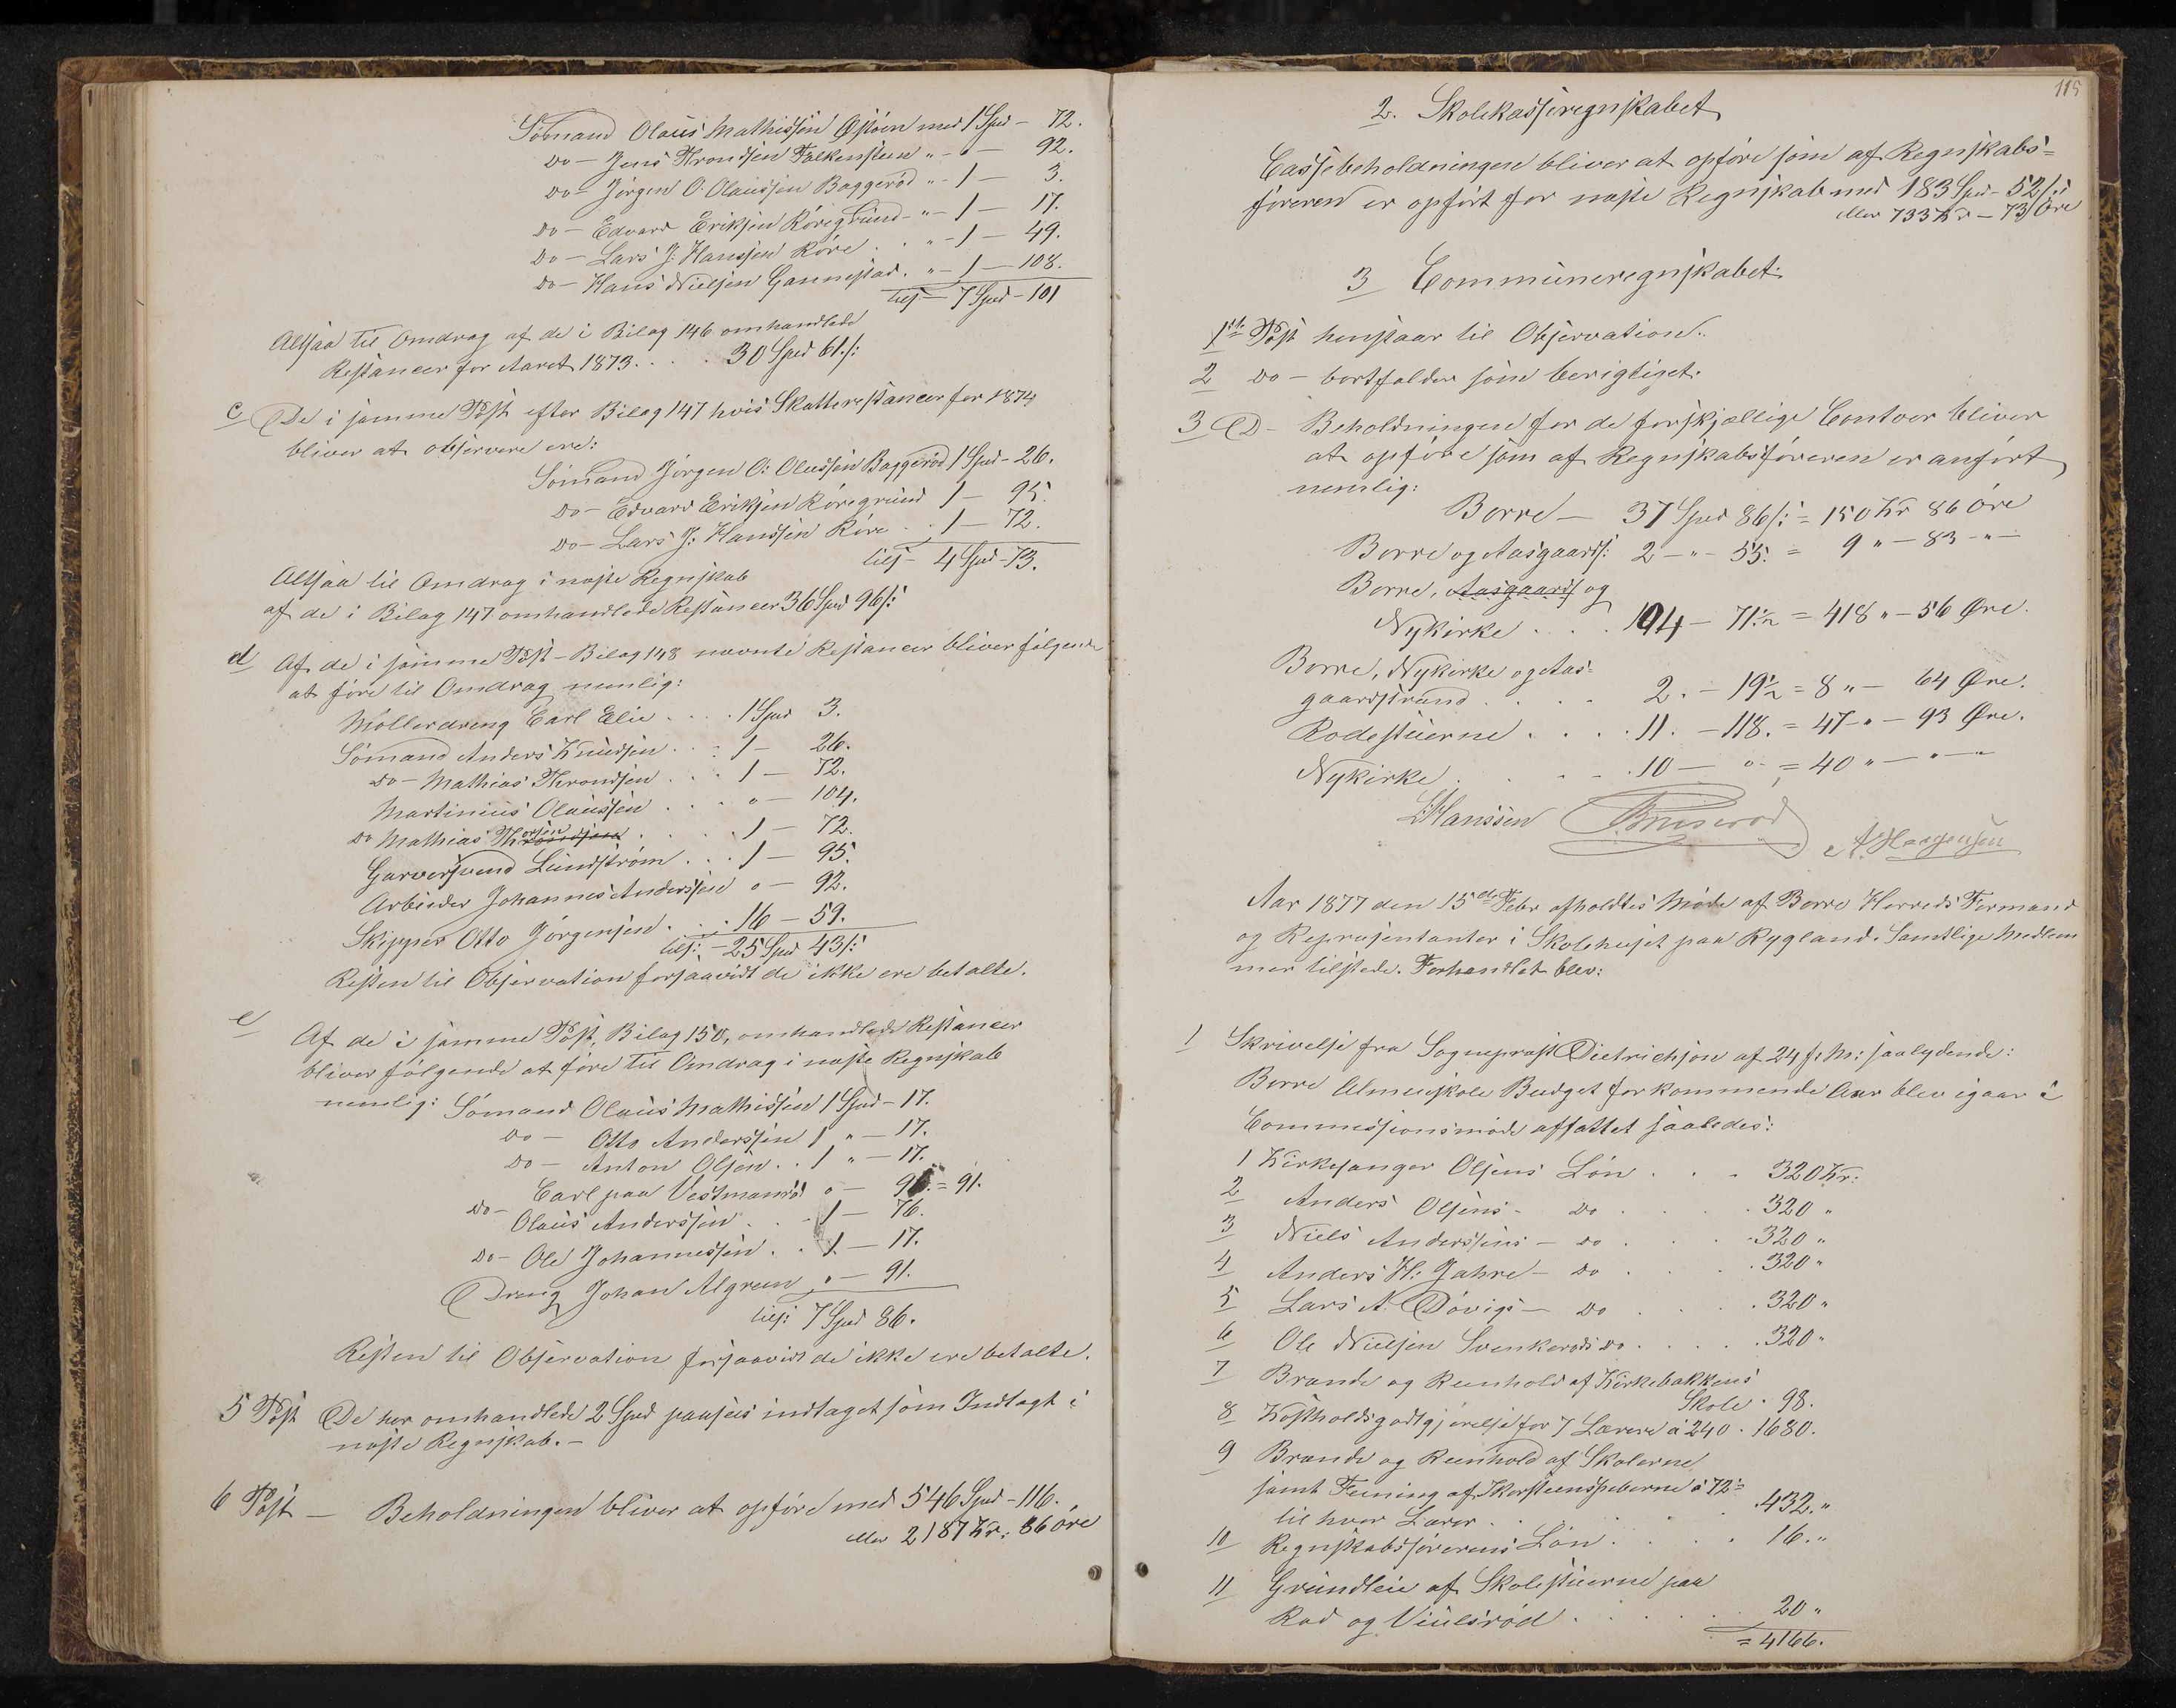 Sømand Olaus Mathissen med 1 Spd - 72.
Do - Jens Throndsen Falkensteen " - " - 92.
Do - Jørgen O: Olaussen Baggerød " - 1 - 3.
Do - Edvard Eriksen Røregrund - " - 1 - 17.
Do - Lars J: Hanssen Røre . . " - 1 - 49.
Do - Hans Nielsen Gannestad . " - 1 - 108.
tils - 7 Spd - 101
Altsaa til Omdrag af de i Bilag 146 omhandlede
Restancer for Aaret 1873 . . . 30 Spd 61 s:
c De i samme Post efter Bilag 147 hvis Skatterestancer for 1874
bliver at observere ere:
Sømand Jørgen O: Olussen Baggerød 1 Spd - 26.
Do - Edvard Eriksen Røregrund 1 - 95.
Do - Lars J: Hanssen Røre . . 1 - 72.
tils - 4 Spd - 73.
Altsaa til Omdrag i næste Regnskab
af de i Bilag 147 omhandlede Restancer 36 Spd 96 s:
d Af de i samme Post - Bilag 148 nævnte Restancer bliver følgende
at føre til Omdrag nemlig:
Møllerdreng Carl Elie . . . . 1 Spd 3.
Sømand Anders Knudsen . . . 1 - 26.
Do - Mathias Throndsen . . . 1 - 72.
Martinius Olaussen . . . " - 104.
Do Mathias Thorsen . . . . 1 - 72.
Garversvend Lundstrøm . . . 1 - 95.
Arbeider Johannes Anderssen " - 92.
Skipper Otto Jørgensen . . . 16 - 59.
tils: - 25 Spd 43 s:
Resten til Observation forsaavidt de ikke ere betalte.
e Af de i samme Post, Bilag 150, omhandlede Restancer
bliver følgende at føre til Omdrag i næste Regnskab
nemlig: Sømand Olaus Mathissen 1 Spd - 17.
Do - Otto Anderssen 1 " - 17.
Do - Anton Olsen . . 1 " - 17.
Carl paa Vestmanrød " - 91. = 91.
Do - Olaus Anderssen . . . 1 - 76.
Do - Ole Johannessen . . 1 - 17.
Dreng Johan Algreen " - 91.
tils: 7 Spd 86.
Resten til Observation forsaavidt de ikke ere betalte.
5 Post De her omhandlede 2 Spd paasees indtaget som Indtægt i
næste Regnskab. -
6 Post - Beholdningen bliver at opføre med 546 Spd - 116.
eller 2187 Kr: 86 øre
115
2. Skolekasseregnskabet
Cassebeholdningen bliver at opføre som af Regnskabs=
føreren er opført for næste Regnskab med 183 Spd - 52 s:
eller 733 Kr - 73 Øre
3 Communeregnskabet:
1ste Post henstaar til Observation.
2 Do - bortfalder som berigtiget.
3 D - Beholdningen for de forskjællige Contoer bliver
at opføre som af Regnskabsføreren er anført
nemlig:
Borre - 37 Spd 86 s: = 150 Kr 86 Øre
Borre og Aasgaards: 2 - " - 55. = 9 " - 83 - " -
Borre, Aasgaards og
Nykirke . . . 104 - 71 1/2 = 418 " - 56 Øre.
Borre, Nykirke og Aas=
gaardstrand . . . . 2. - 19 1/2 = 8 " - 64 Øre.
Rodestuerne . . . . 11. - 118. = 47 - " - 93 Øre.
Nykirke . . . . . 10 - " - = 40 " - " - "
LHanssen
Aar 1877 den 15de Febr afholdtes Møde af Borre Herreds Formænd
og Repræsentanter i Skolehuset paa Rygland. Samtlige Medlem
mer tilstede. Forhandlet blev:
1 Skrivelse fra Sogneprest Dietrichson af 24 f. M: saalydende:
Borre Almueskole Budget for kommende Aar blev igaar i
Commissionsmøde affattet saaledes:
1 Kirkesanger Olsens Løn . . . 320 Kr:
2 Anders Olsens - Do . . . . 320 "
3 Niels Anderssens - Do . . . 320 "
4 Anders H: Jahre - Do . . . 320 "
5 Lars A. Døvigs - Do . . . . 320 "
6 Ole Nielsen Svenkerøds Do . . . . 320 "
7 Brænde og Reenhold af Kirkebakkens
Skole . 98.
8 Kostholdsgodtgjørelse for 7 Lærere a 240 . 1680.
9 Brænde og Reenhold af Skolerne
samt Feining af Skorsteenspiberne a 72=
til hver Lærer . . . . . . 432. "
10 Regnskabsførerens Løn . . . . 16. "
11 Grundleie af Skolestuerne paa
Rød og Viulsrød . . . . . 20 "
= 4166.